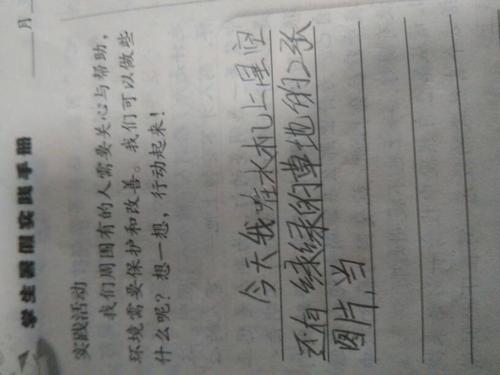 学生暑假实践手册
月
实践活动
我们周围有的人需要关心与帮助，
环境需要保护和改善。我们可以做些
什么呢？想一想，行动起来！
今天我在水机上星空
还有绿绿的草地的2张
图片,当